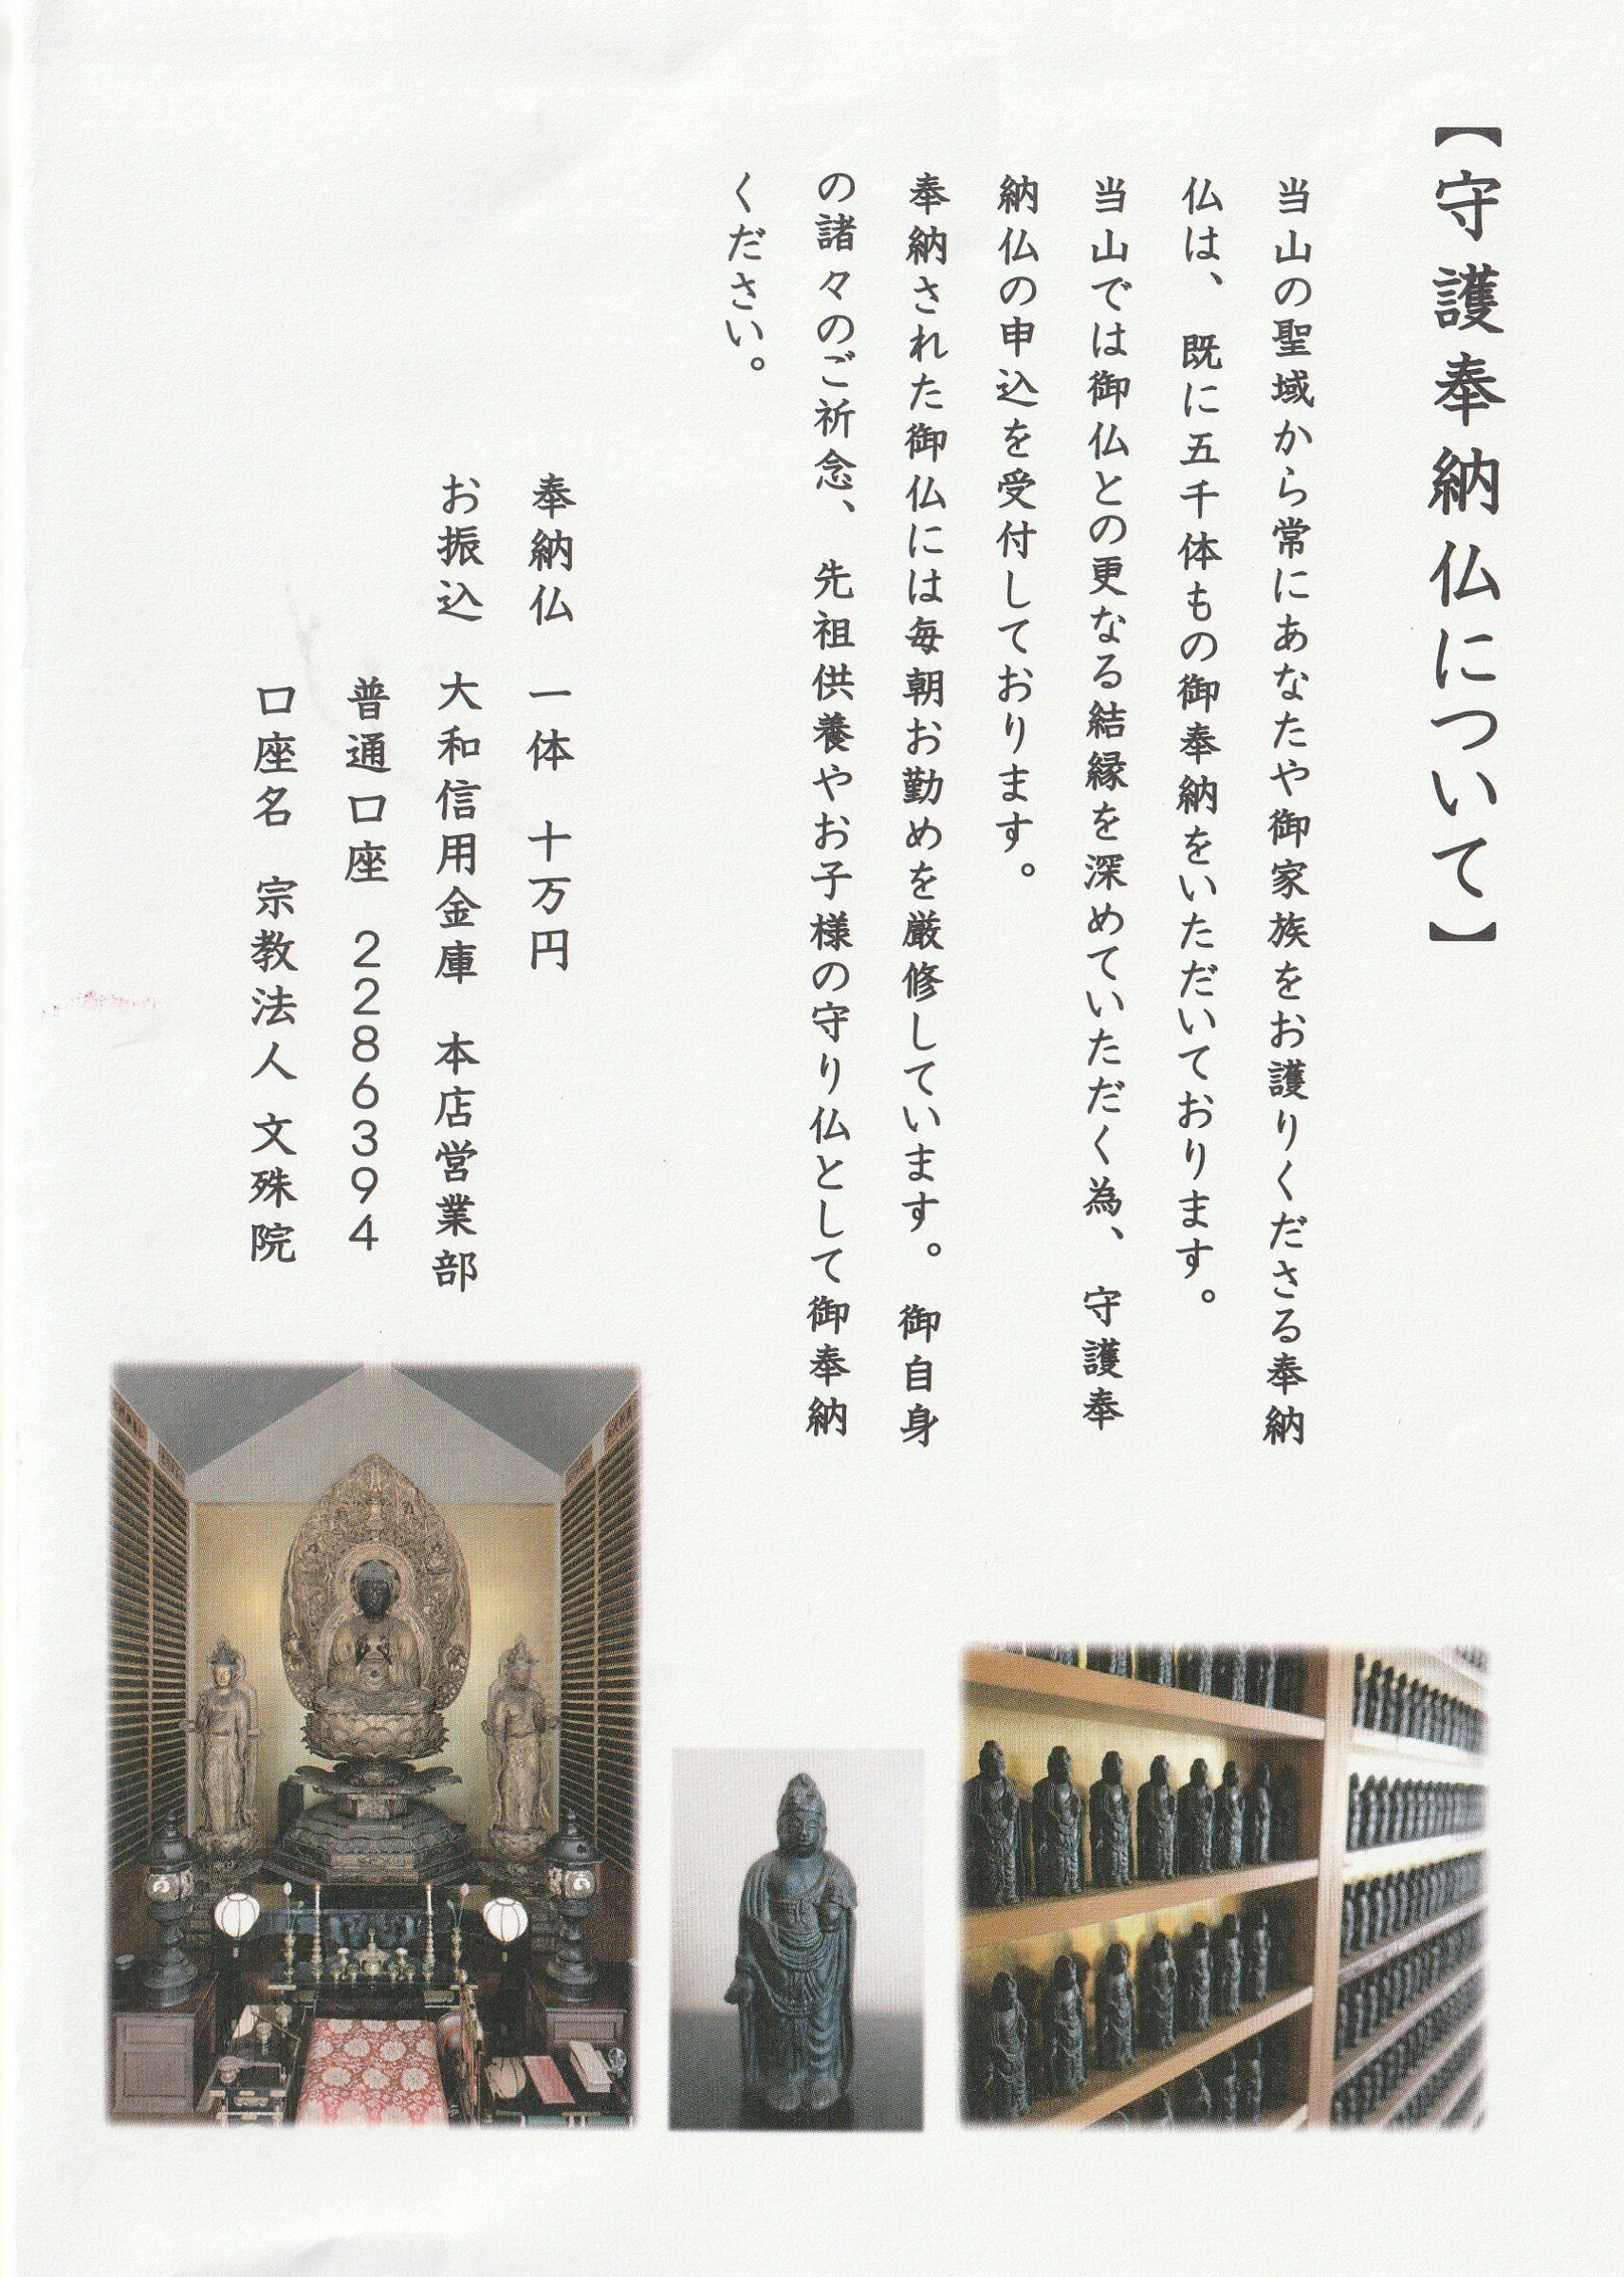 【守護奉納仏について】
当山の聖域から常にあなたや御家族をお護りくださる奉納
仏は、既に五千体もの御奉納をいただいております。
当山では御仏との更なる結縁を深めていただく為、守護奉
納仏の申込を受付しております。
奉納された御仏には毎朝お勤めを厳修しています。御自身
の諸々のご祈念、先祖供養やお子様の守り仏として御奉納
ください。
奉納仏 一体 十万円
お振込 大和信用金庫 本店営業部
普通口座 2286394
口座名 宗教法人 文殊院